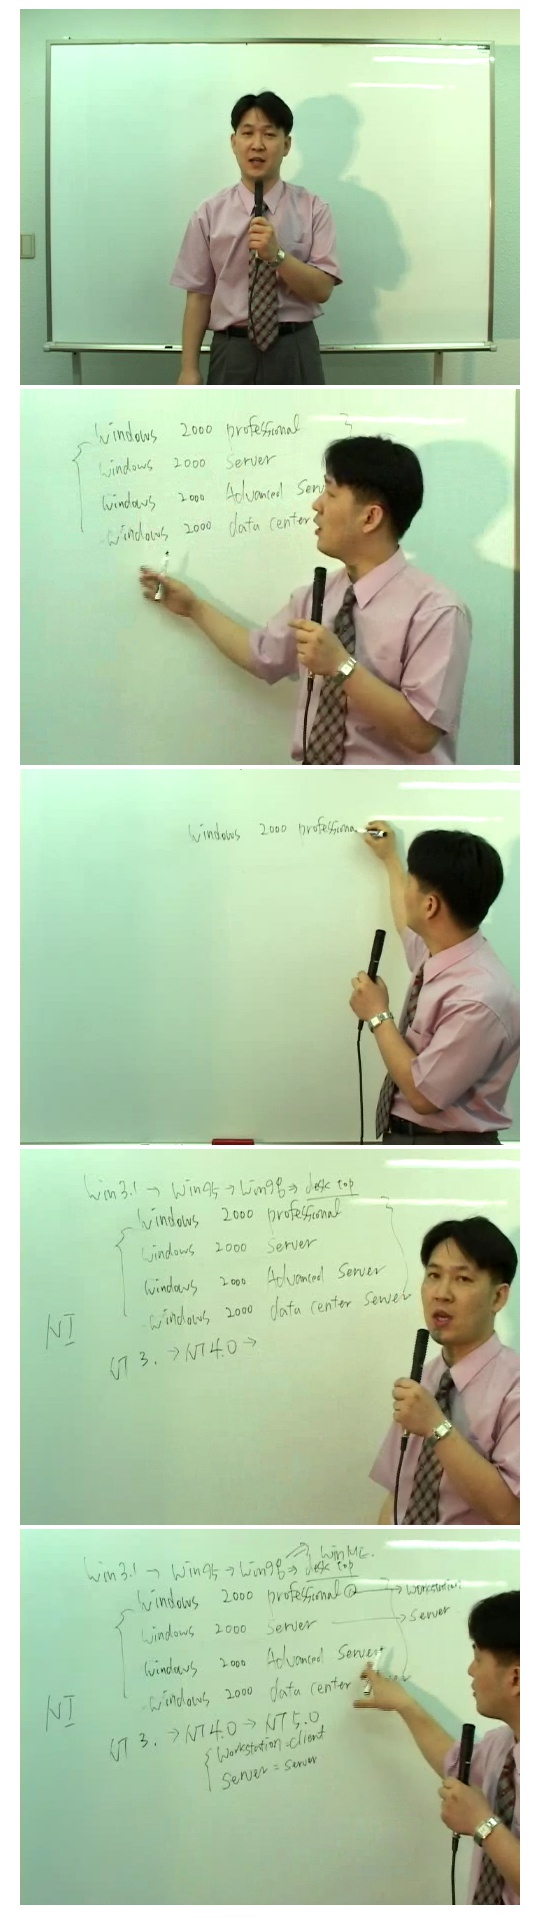 Windows 2000 professional
Windows 2000 Server
Windows 2000 Advanced Serv
Windows 2000 data center
Windows 2000 professiona
Win3.1 → Win95 → Win98 → desk top
Windows 2000 professional
Windows 2000 Server
Windows 2000 Advanced Server
Windows 2000 data center Server
NT
NT 3. → NT4.0 →
WinME.
Win3.1 → Win95 → Win98 → desk top
Windows 2000 professional → Workstation
Windows 2000 Server → Server
Windows 2000 Advanced Server
Windows 2000 data center
NT
NT 3. → NT4.0 → NT5.0
Workstation = client
Server = Server